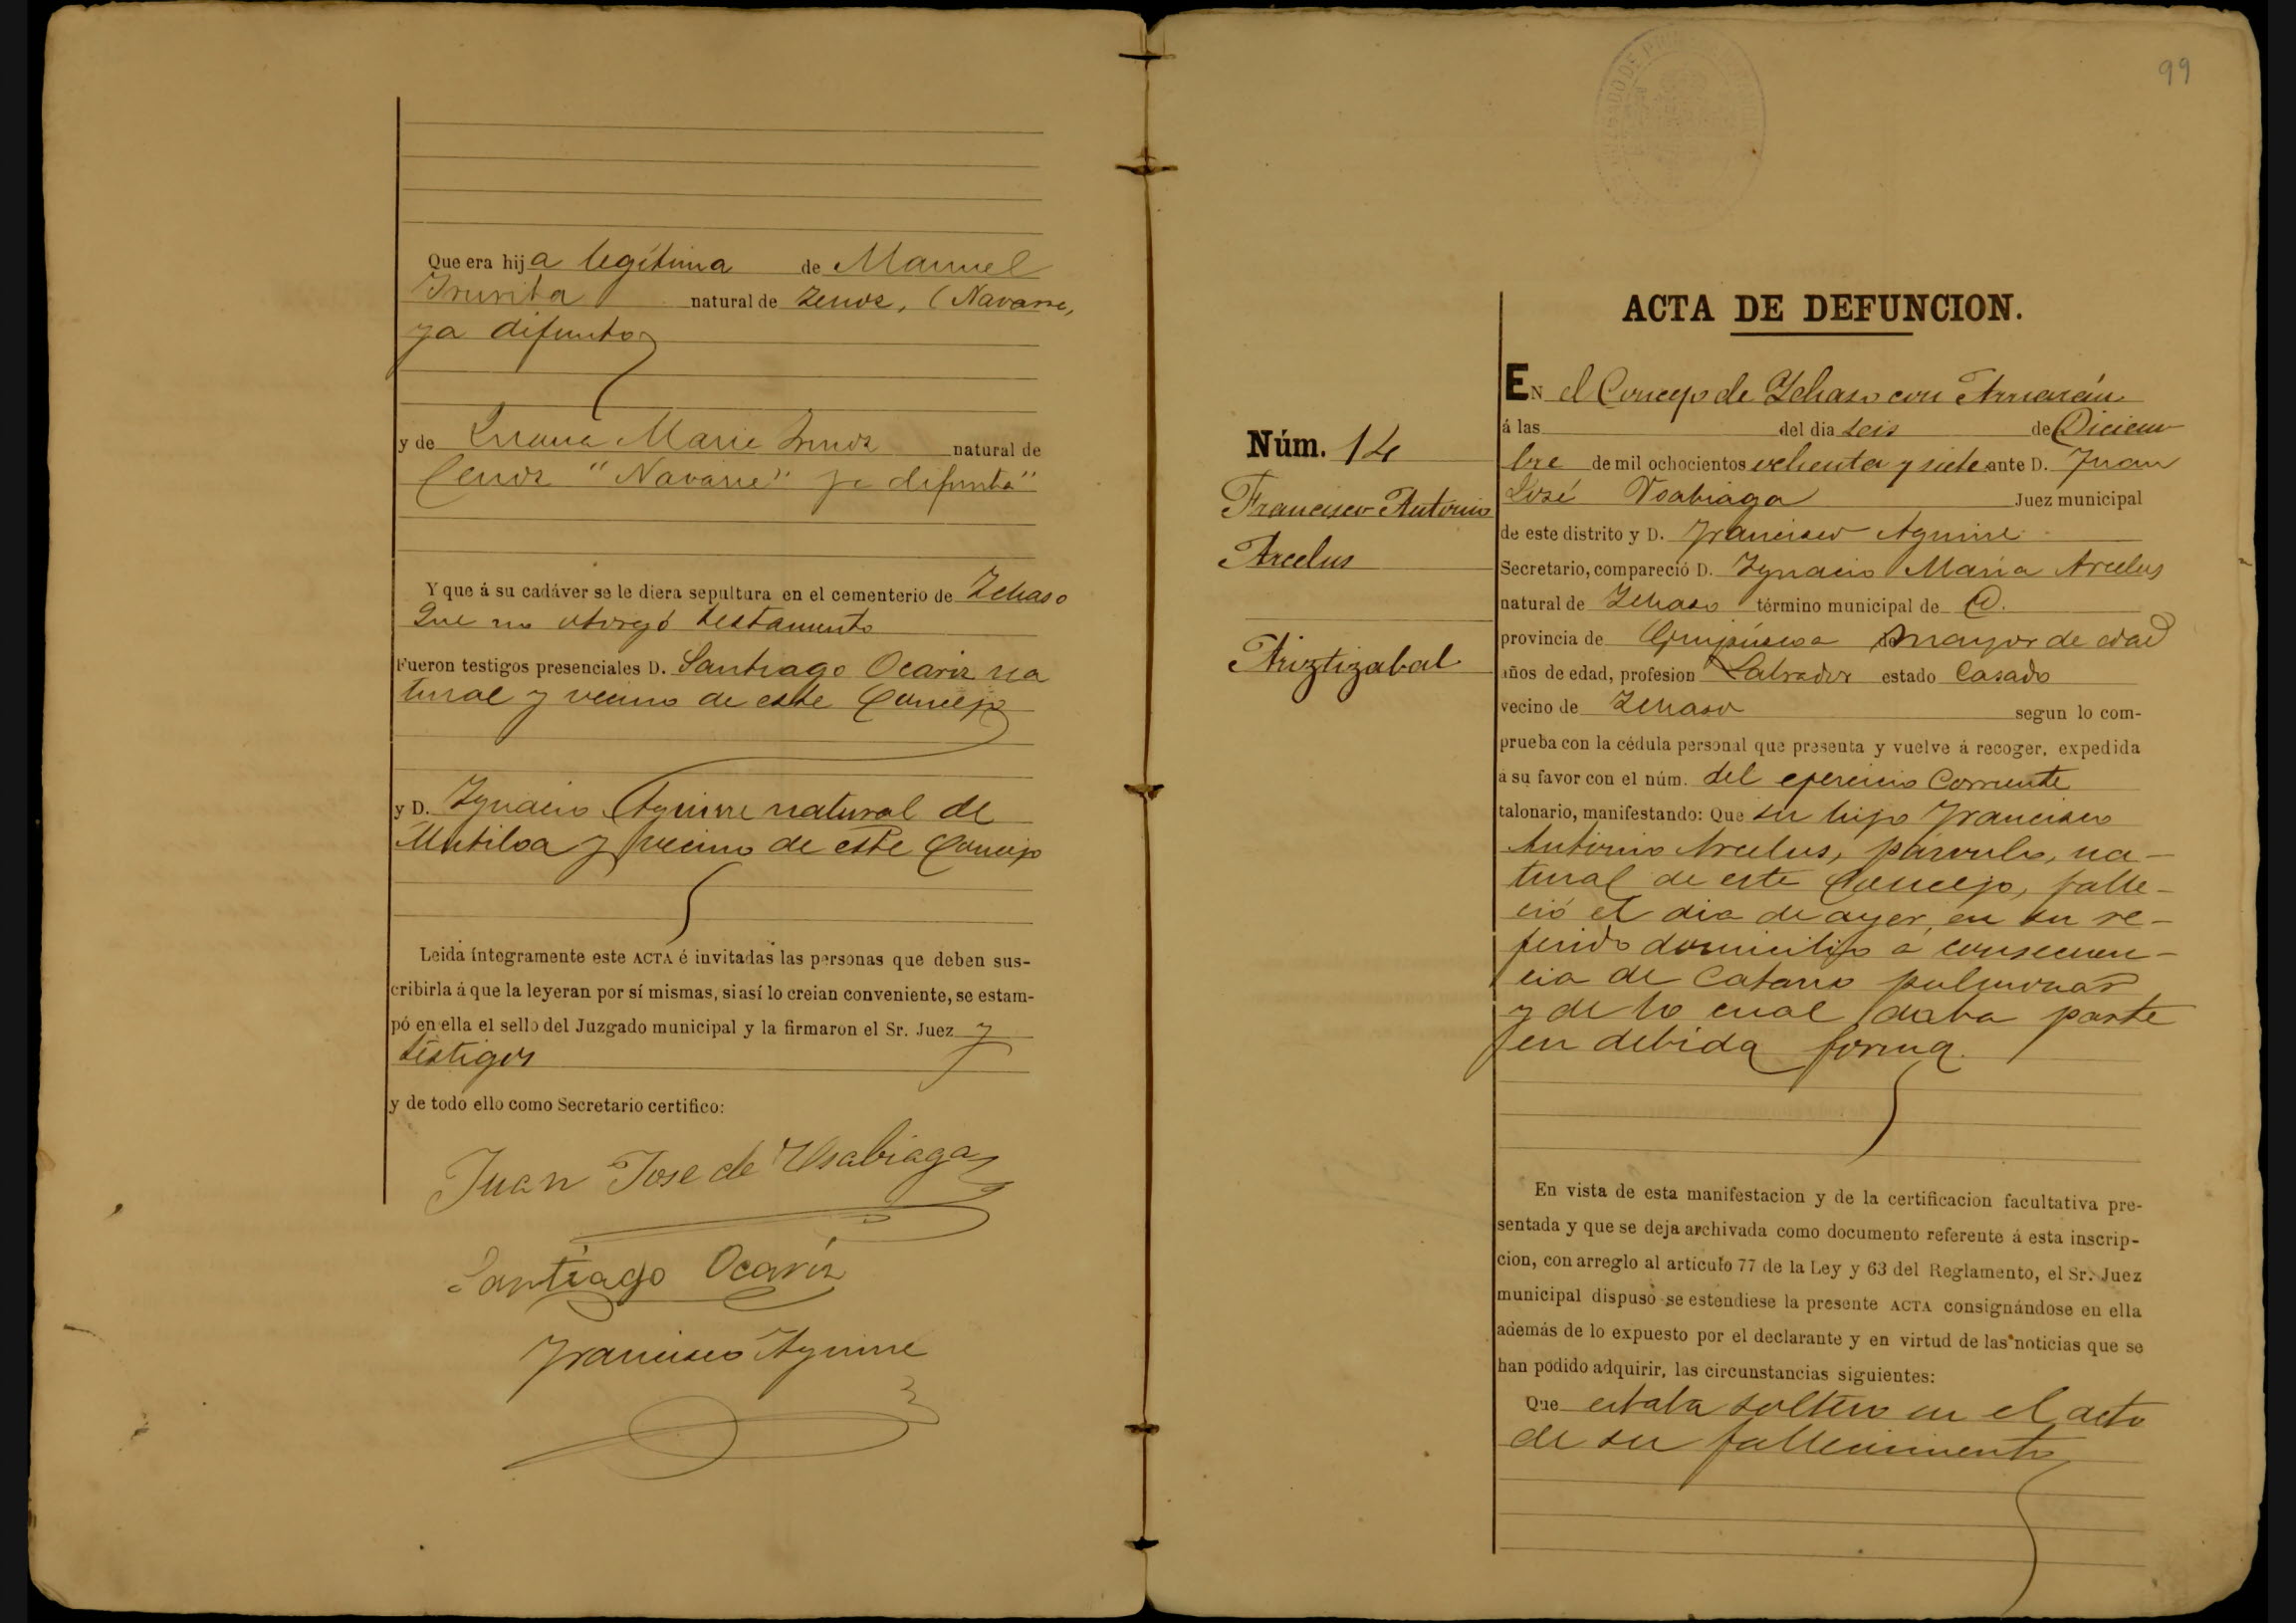 Que era hija legítima de Manuel
Irurita natural de Leiroz, (Navarra,
ya difunto
y de Juana Maria natural de
"Navarra" ya difunta"
Y que á su cadáver se le diera sepultura en el cementerio de Ichaso
Que no otorgó testamento
Fueron testigos presenciales D. Santiago Ocariz na
tural y vecino de este Concejo
y D. Ygnacio Aguirre natural de
Mutiloa y vecino de este Concejo
Leida íntegramente este ACTA é invitadas las personas que deben sus-
cribirla á que la leyeran por sí mismas, si así lo creian conveniente, se estam-
pó en ella el sello del Juzgado municipal y la firmaron el Sr. Juez y
testigos
y de todo ello como Secretario certifico:
Juan Jose de Usabiaga
Santiago Ocariz
Francisco Aguirre
99
Núm. 14
Francisco Antonio
Arcelus
Ariztizabal
ACTA DE DEFUNCION.
EN el Concejo de Ychaso con Arriarán
á las del dia seis de Diciem
bre de mil ochocientos ochenta y siete ante D. Juan
José Usabiaga Juez municipal
de este distrito y D. Francisco Aguirre
Secretario, compareció D. Ygnacio Maria Arcelus
natural de Ichaso término municipal de id.
provincia de Guipúzcoa de mayor de edad
años de edad, profesion Labrador estado Casado
vecino de Ichaso segun lo com-
prueba con la cédula personal que presenta y vuelve á recoger, expedida
á su favor con el núm. del ejercicio Corriente
talonario, manifestando: Que su hijo Francisco
Antonio Arcelus, párvulo, na-
tural de este Concejo, falle-
ció el dia de ayer, en su re-
ferido domicilio á consecuen-
cia de Catarro pulmonar
y de lo cual daba parte
en debida forma.
En vista de esta manifestacion y de la certificacion facultativa pre-
sentada y que se deja archivada como documento referente á esta inscrip-
cion, con arreglo al artículo 77 de la Ley y 63 del Reglamento, el Sr. Juez
municipal dispuso se estendiese la presente ACTA consignándose en ella
además de lo expuesto por el declarante y en virtud de las noticias que se
han podido adquirir, las circunstancias siguientes:
Que estaba soltero en el acto
de su fallecimiento